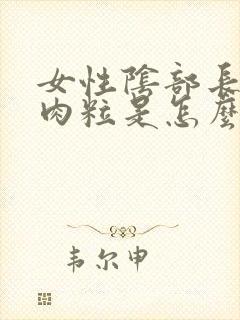 女性陰部長
肉粒是怎麼
韦尔申